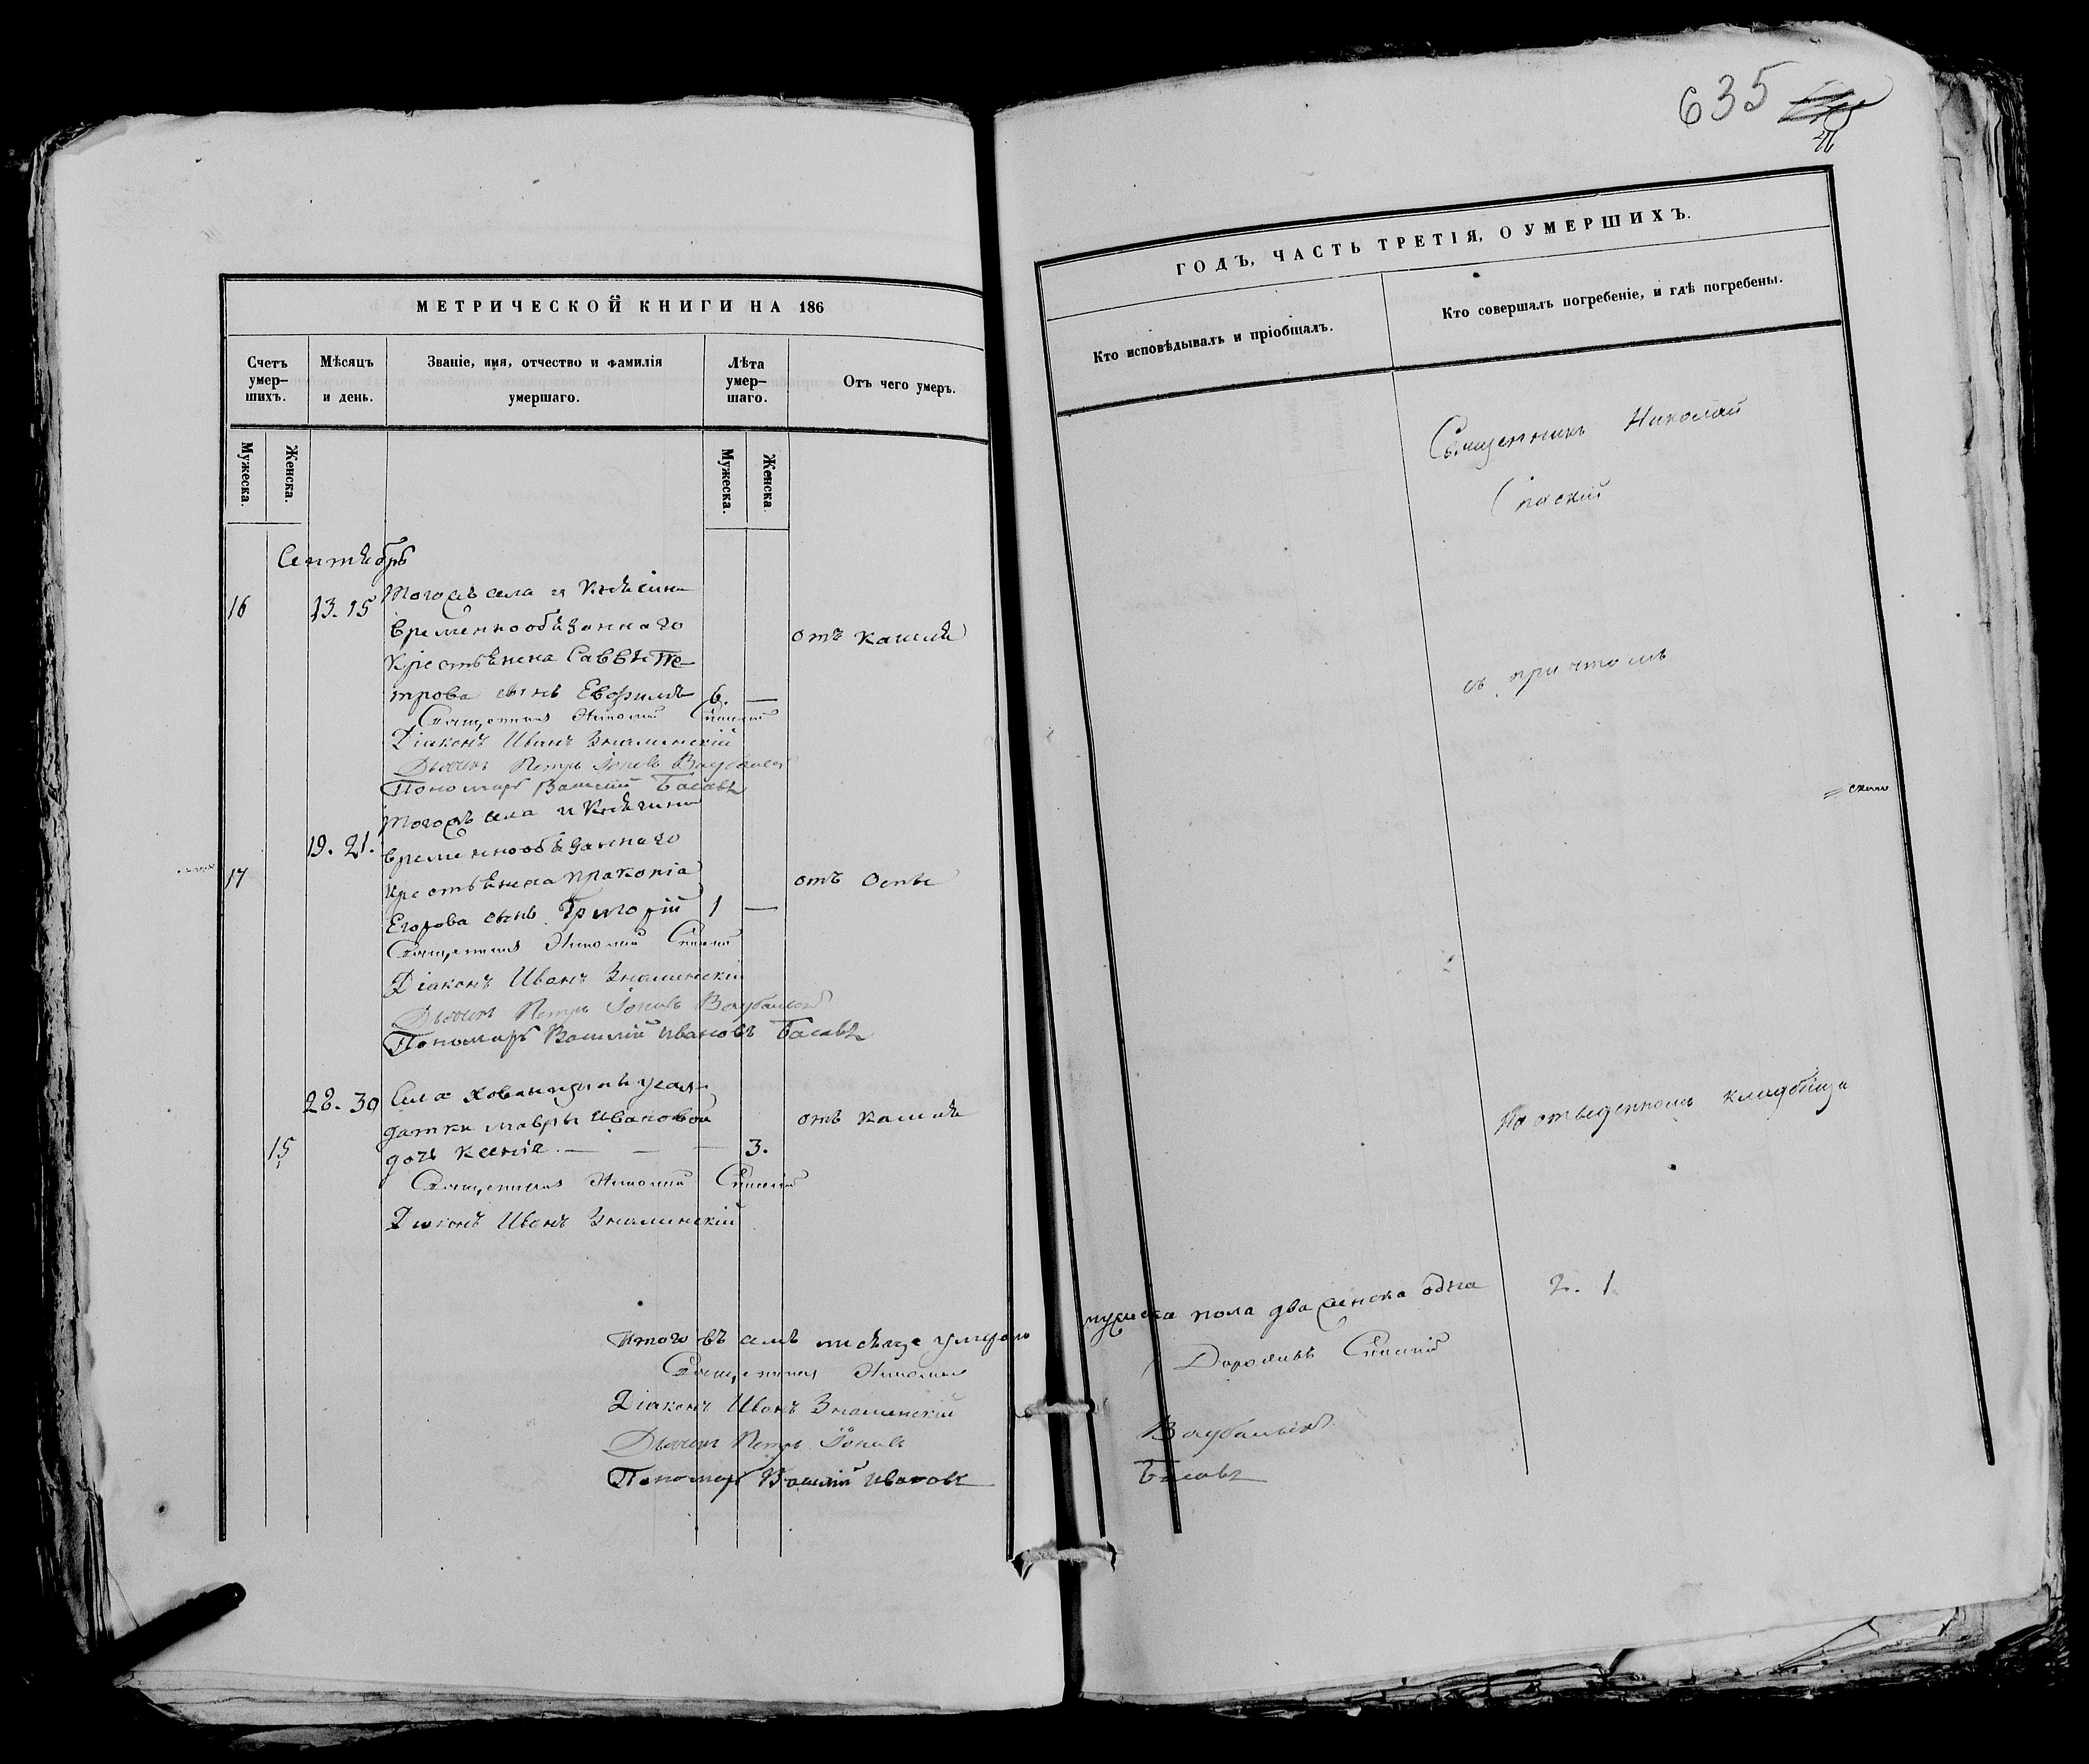 635
МЕТРИЧЕСКОЙ КНИГИ НА 186
Счетъ умер-шихъ.
Мѣсяцъ и день.
Званіе, имя, отчество и фамилія умершаго.
Лѣта умер-шаго.
Отъ чего умеръ.
Мужеска.
Женска.
Мужеска.
Женска.
Сентябрь
16
13. 15
Тогожъ села
временнообязаннаго
отъ кашля
крестьянина Саввы Пе-
трова сынъ Евфимъ 6. —
Священникъ Николай Спаскій
Діаконъ Иванъ Знаминскій
Дьячекъ Петръ Іоновъ
Пономарь Василій Басовъ
Тогожъ села
19. 21.
временнообязаннаго
17
крестьянина Пракопія
отъ Оспы
Егорова сынъ Григорій 1 —
Священникъ Николай Спаскій
Діаконъ Иванъ Знаминскій
Дьячекъ Петръ Іоновъ
Пономарь Василій Ивановъ Басовъ
28. 30
Села
датки Мавры Ивановой
отъ кашля
15
дочь Ксенія. — — — 3.
Священникъ Николай Спаскій
Діаконъ Иванъ Знаминскій
Итого въ семъ мѣсяце умерло
Священникъ Николай
Діаконъ Иванъ Знаменскій
Дьячекъ Петръ Іоновъ
Пономарь Василій Ивановъ
ГОДЪ, ЧАСТЬ ТРЕТІЯ, О УМЕРШИХЪ.
Кто исповѣдывалъ и пріобщалъ.
Кто совершалъ погребеніе, и гдѣ погребены.
Священникъ Николай
Спаскій
съ причтомъ
На отведенномъ кладбище
мужеска пола два женска одна 2. 1
Спаскій
Басовъ